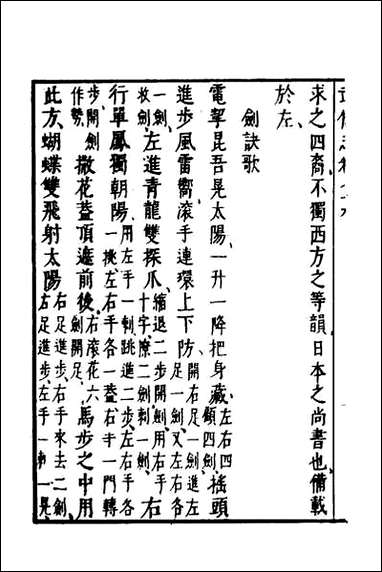 求之四裔、不獨西方之等韻、日本之尚書也、備載
於左、
劍訣歌
電挈昆吾晃太陽、一升一降把身藏、左右四顧四劍、搖頭
進步風雷嚮、滾手連環上下防、開右足一劍進左足一劍、又左右各
一劍收劍、左進青龍雙探爪、縮退二步開劍用右手十字撩二劍刺一劍、右
行單鳳獨朝陽、用左手一刺跳進二步、左右手各一挑、左右手各一蓋、右手一門轉
步開劍作勢、撒花蓋頂遮前後、右滾花六劍開足、馬步之中用
此方、蝴蝶雙飛射太陽、右足進步右手來去二劍、右足進步、左手一刺一晃、